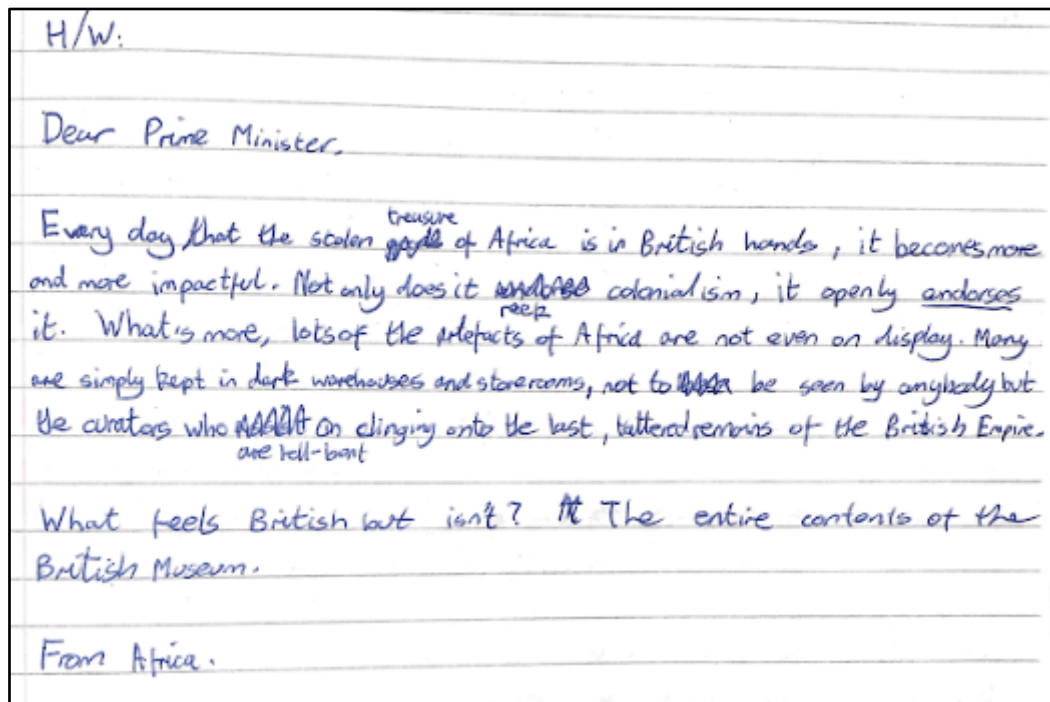 H/W:
Dear Prime Minister.
Every day that the stolen treasure of Africa is in British hands, it becomes more
and more impactful. Not only does it reek colonialism, it openly endorses
it. What's more, lots of the artefacts of Africa are not even on display. Many
are simply kept in dark warehouses and storerooms, not to be seen by anybody but
the curators who are hell-bent on clinging onto the last, tattered remains of the British Empire.
What feels British but isn't? The entire contents of the
British Museum.
From Africa.